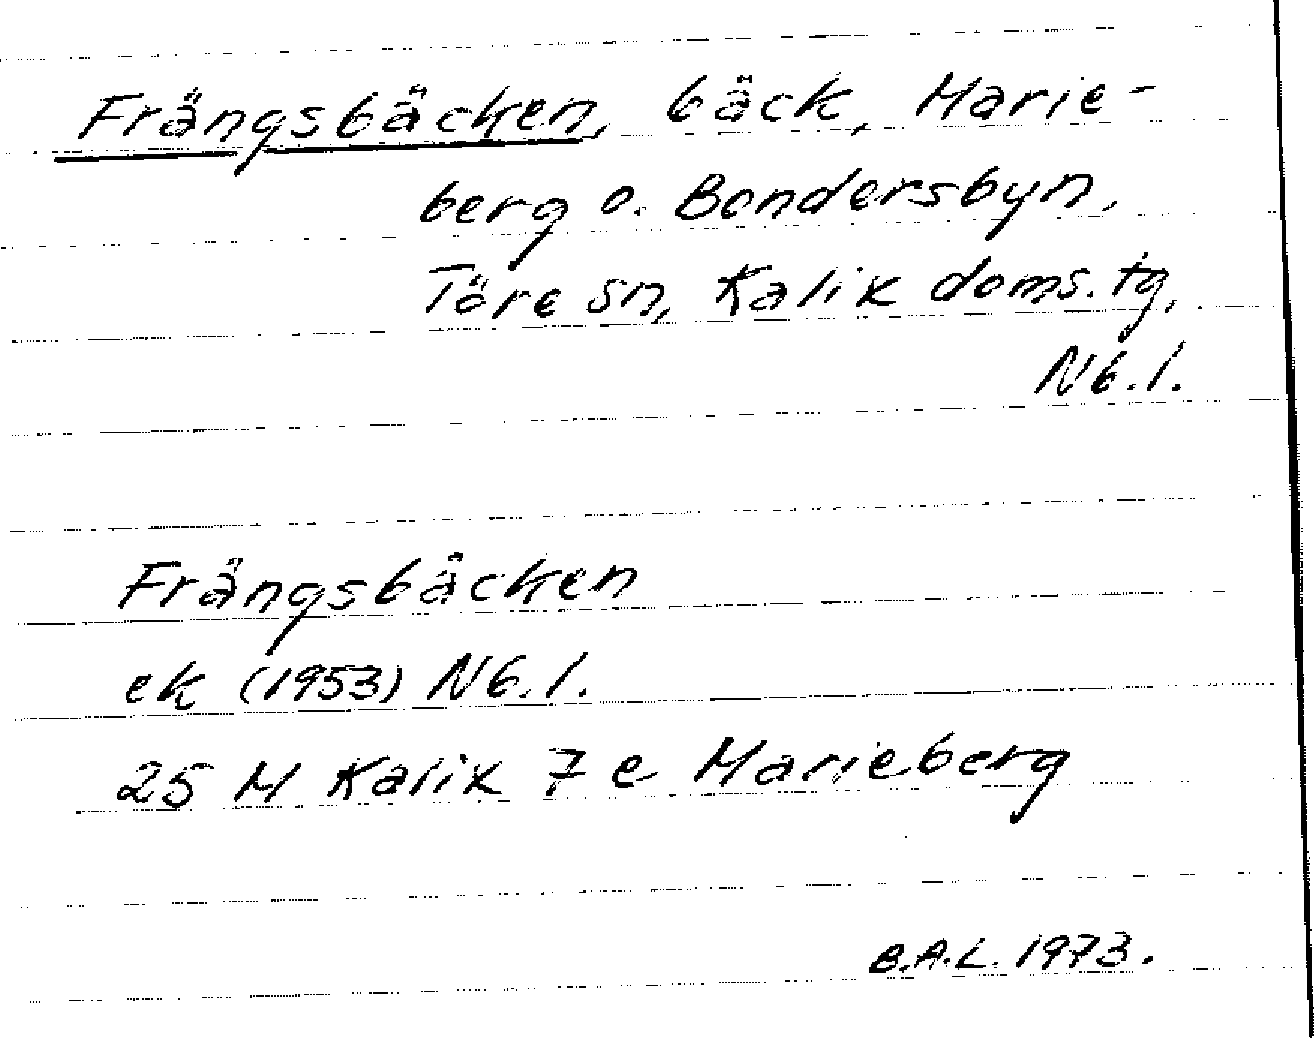 Frängsbäcken, bäck, Marie-
berg o. Bondersbyn,
Töre sn, Kalix doms.tg,
Nb.l.
Frängsbäcken
ek (1953) Nb.l.
25 M Kalix 7 e Marieberg
B.A.L. 1973.